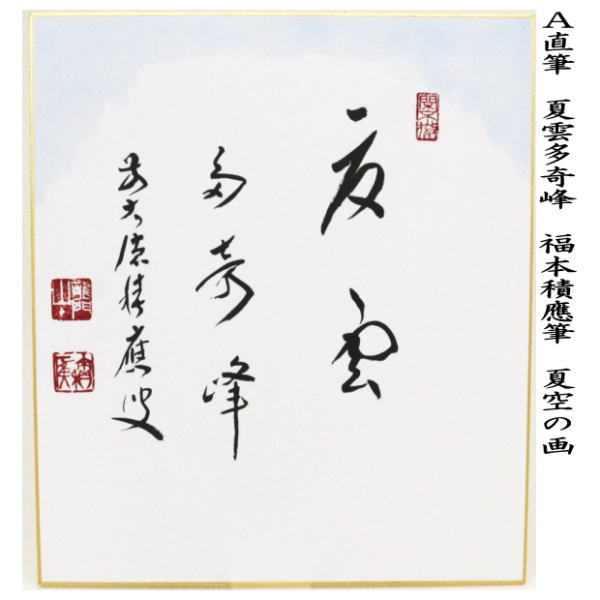 A直筆　夏雲多奇峰　福本積應筆　夏空の画
夏雲
多奇峰
前大德積應叟